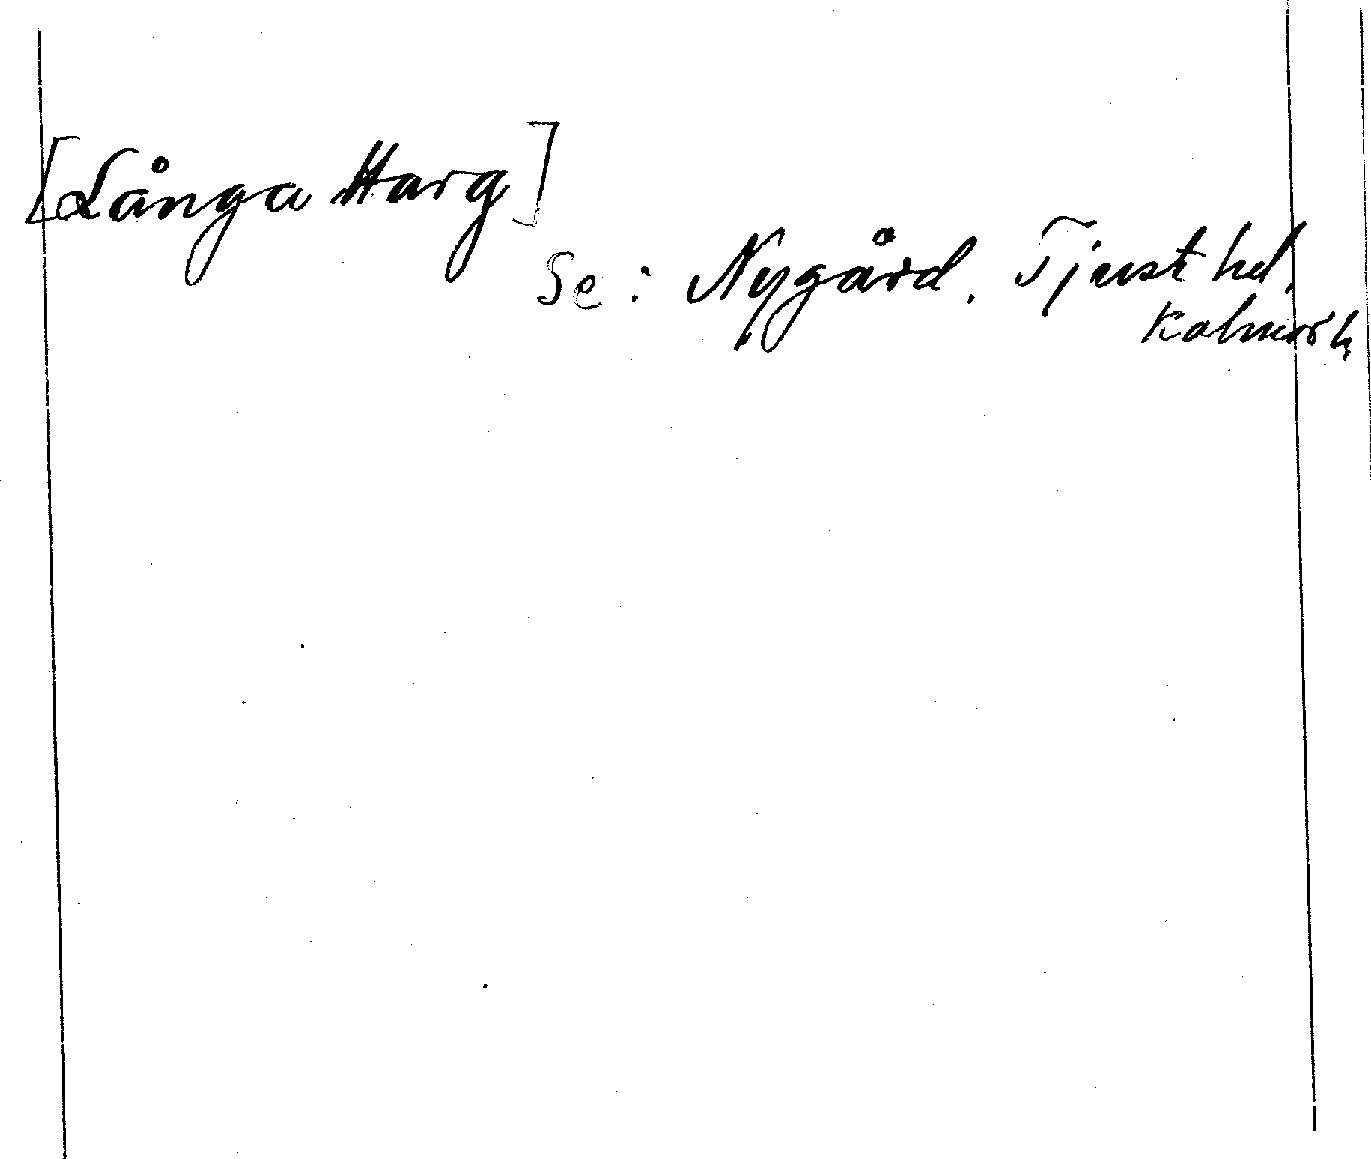 [Långa Harg]
Se: Nygård. Tjust hd.
Kalmar l.